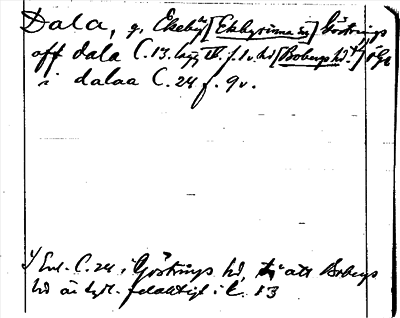 Dala, g. Ekeby [Ekbyrinna sn] Göstrings
off dala C. 13. lägg IV. f. 1 v. hd [Bobergs hd.] ÖG
i dalaa C. 24 f. 9 v.
Enl. C. 24 i Göstrings hd, att Bobergs
hd är felaktigt i C. 13